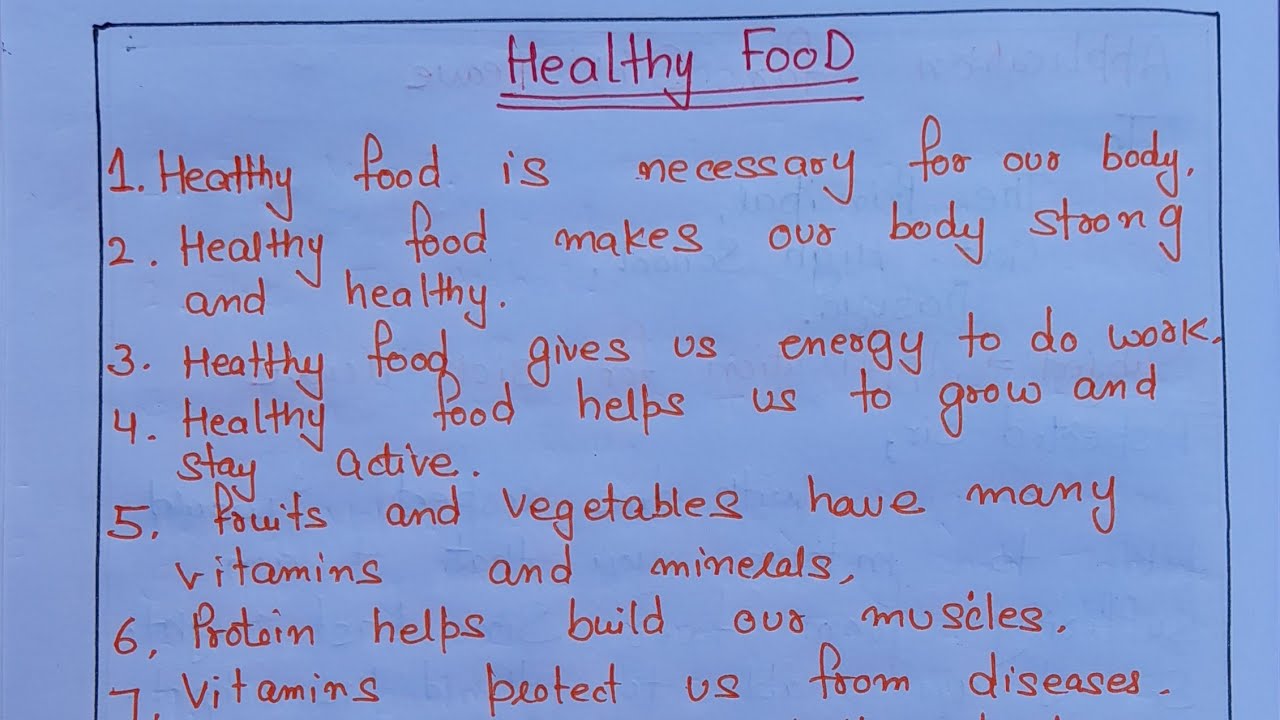 Healthy FooD
1. Healthy food is necessary for our body.
2. Healthy food makes our body strong
and healthy.
3. Healthy food gives us energy to do work.
4. Healthy food helps us to grow and
stay active.
5. fruits and vegetables have many
vitamins and minerals,
6, Protein helps build our muscles.
7. Vitamins protect us from diseases.